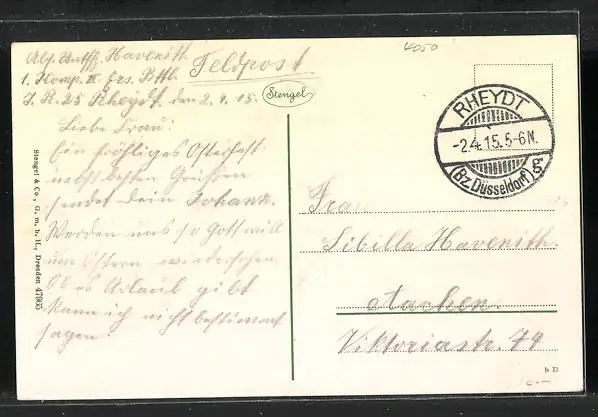 Abs. Untff. Havenith
1. Komp. II Ers. Batl.
J. R. 25 Rheydt, den 2.4.15.
Feldpost.
Stengel
Liebe Frau:
Ein fröhliges Osterfest
nebst besten Grüßen
sendet dein Johann.
Werden uns so Gott will
um Ostern wiedersehen
Ob es Urlaub gibt
kann ich nicht bestimmt
sagen.
Stengel & Co., G. m. b. H., Dresden 47085
4050
RHEYDT
-2.4.15.5-6N.
(Bz. Düsseldorf) g
Frau
Sibilla Havenith.
Aachen.
Viktoriastr. 74
b D